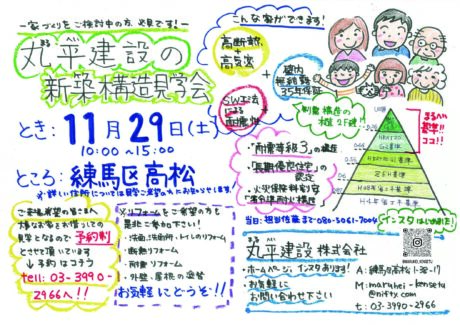 ー家づくりをご検討中の方、必見です!ー
まる へい
丸平建設の
新築構造見学会
とき:11月29日(土)
10:00〜15:00
ところ:練馬区高松
※詳しい住所については見学ご希望の方にお知らせします!
こんな家ができます!
高断熱
+
高気密
+
SW工法
による
耐震性
壁内
無結露
35年保証
制震構造の
木造2F建!!
・「耐震等級3」の構造
・「長期優良住宅」の
認定
・火災保険料割安
「省令準耐火構造」
HEAT20
G2基準
ZEH基準
ココ!!
当日:担当佐藤まで080-5061-7004
インスタはじめました!
ご来場希望の皆さまへ
大事なお家をお借りしての
見学となるので予約制
とさせて頂いています
↓予約はコチラ
tell:03-3990-
2966へ!!
※リフォームをご希望の方も
是非ご参加下さい!
・洗面、浴室、トイレのリフォーム
・断熱リフォーム
・耐震リフォーム
・外壁・屋根の塗替
お気軽にどうぞ!!
丸平建設 株式会社
・ホームページ、インスタあります!
お気軽に
お問い合わせ下さい
A:練馬区高松1-38-17
M:maruhei-kensetu
@nifty.com
t:03-3990-2966